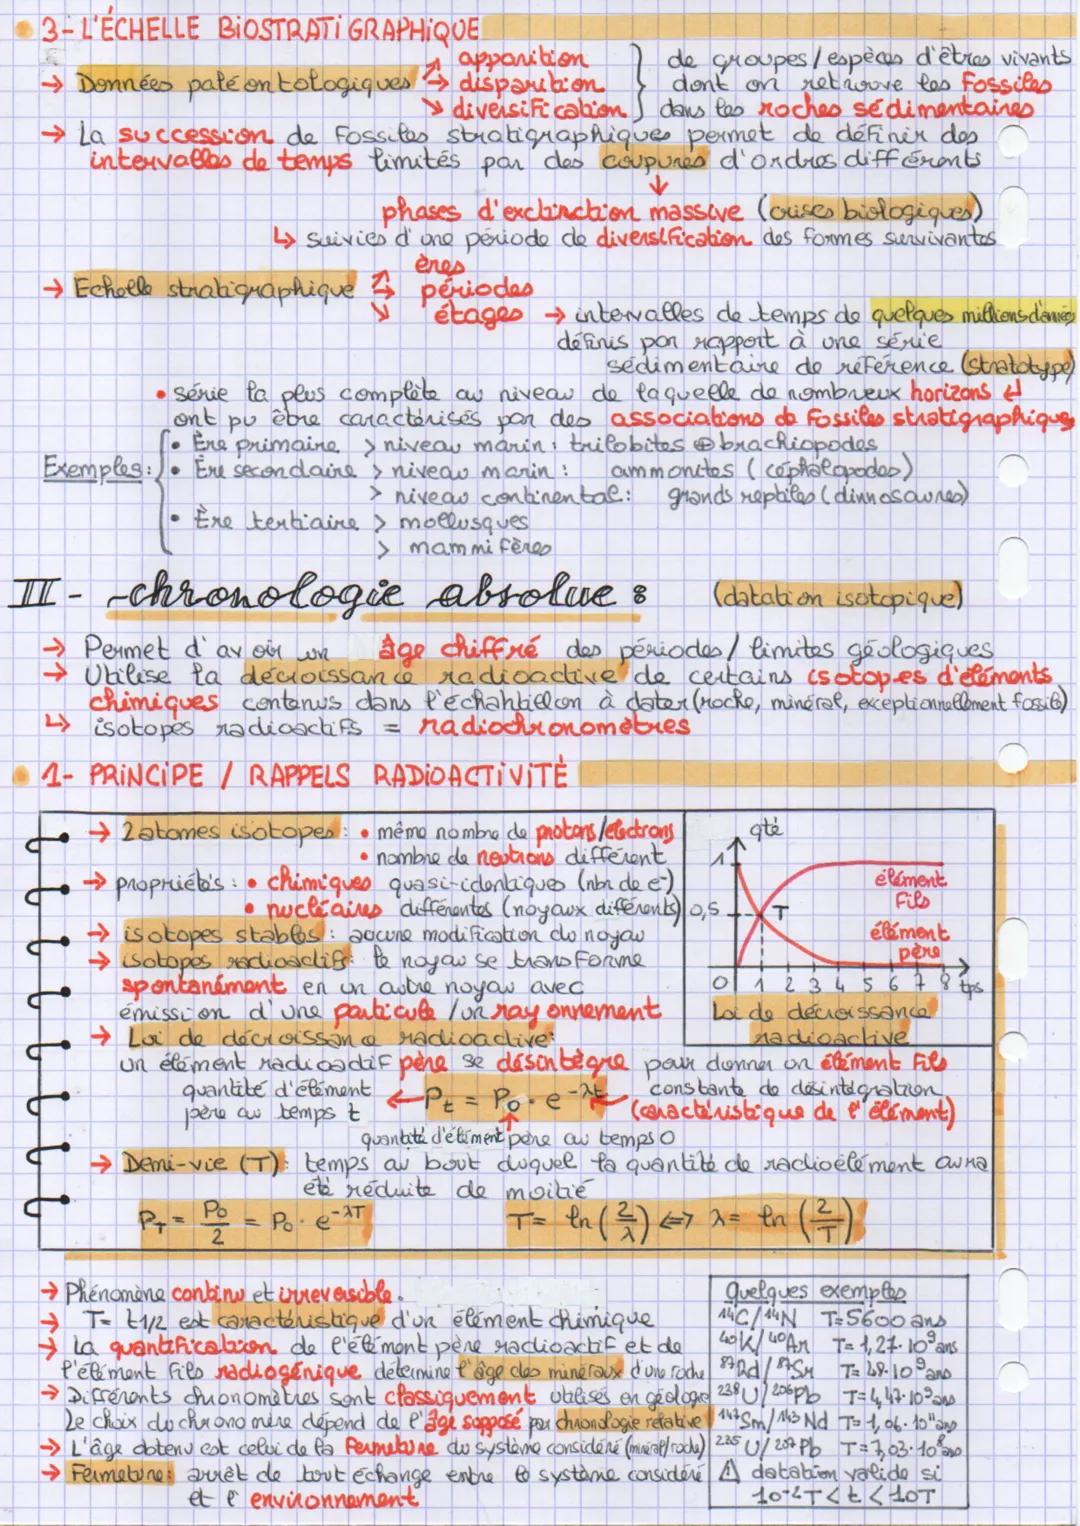 3- L'ÉCHELLE BIOSTRATIGRAPHIQUE
→ Données paléontologiques
apparition
disparition
diversification
de groupes/espèces d'êtres vivants
dont on retrouve les Fossiles
dans les roches sédimentaires
→ La succession de Fossiles stratigraphiques permet de définir des
intervalles de temps limités par des coupures d'ordres différents
phases d'exctinction massive (crises biologiques)
↳ suivies d'une période de diversification des formes survivantes
→ Echelle stratigraphique
ères
périodes
étages → intervalles de temps de quelques millions d'années
définis par rapport à une série
sédimentaire de référence (stratotype)
• série la plus complète au niveau de laquelle de nombreux horizons
ont pu être caractérisés par des associations de Fossiles stratigraphiques
Exemples:
• Ère primaire > niveau marin : trilobites ⊕ brachiopodes
• Ère secondaire > niveau marin : ammonites (céphalopodes)
> niveau continental : grands reptiles (dinnosaures)
• Ère tertiaire > mollusques
> mammifères
II - chronologie absolue : (datation isotopique)
→ Permet d'avoir un âge chiffré des périodes/limites géologiques
→ Utilise la décroissance radioactive de certains isotopes d'éléments
chimiques contenus dans l'échantillon à dater (roche, minéral, exceptionnellement fossile)
↳ isotopes radioactifs = radiochronomètres
1- PRINCIPE / RAPPELS RADIOACTIVITÉ
→ 2 atomes isotopes : • même nombre de protons/électrons
• nombre de neutrons différent
→ propriétés : • chimiques quasi-identiques (nbr de e⁻)
• nucléaires différentes (noyaux différents)
→ isotopes stables : aucune modification du noyau
→ isotopes radioactifs : le noyau se transforme
spontanément en un autre noyau avec
émission d'une particule/un rayonnement
qté
1
0,5
T
élément
Fils
élément
père
0 1 2 3 4 5 6 7 8 tps
Loi de décroissance
radioactive
→ Loi de décroissance radioactive :
un élément radioactif père se désintègre pour donner un élément Fils
quantité d'élément
père au temps t
Pt = P0 . e^-λt
constante de désintégration
(caractéristique de l'élément)
quantité d'élément père au temps 0
→ Demi-vie (T) : temps au bout duquel la quantité de radioélément aura
été réduite de moitié
PT = P0/2 = P0 . e^-λT
T = ln (2/λ) ⟺ λ = ln (2/T)
→ Phénomène continu et irréversible.
→ T = t1/2 est caractéristique d'un élément chimique
→ La quantification de l'élément père radioactif et de
l'élément fils radiogénique détermine l'âge des minéraux d'une roche
→ Différents chronomètres sont classiquement utilisés en géologie
Le choix du chronomère dépend de l'âge supposé par chronologie relative
→ L'âge obtenu est celui de la fermeture du système considéré (minéral/roche)
→ Fermeture : arrêt de tout échange entre le système considéré
et l'environnement
Quelques exemples
¹⁴C/¹⁴N T=5600 ans
⁴⁰K/⁴⁰Ar T= 1,27.10⁹ ans
⁸⁷Rd/⁸⁷Sr T= 48.10⁹ ans
²³⁸U/²⁰⁶Pb T=4,47.10⁹ ans
¹⁴⁷Sm/¹⁴³Nd T= 1,06.10¹¹ ans
²³⁵U/²⁰⁷Pb T=7,03.10⁸ ans
⚠ datation valide si
10⁻²T < t < 10T